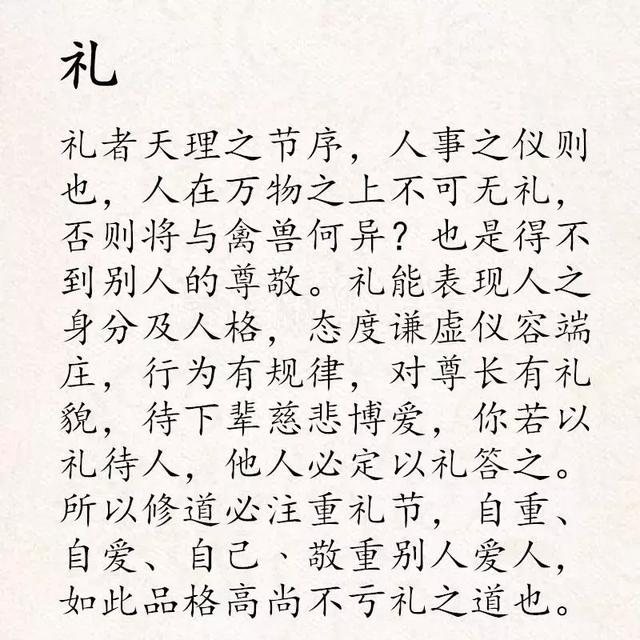 礼
礼者天理之节序，人事之仪则
也，人在万物之上不可无礼，
否则将与禽兽何异？也是得不
到别人的尊敬。礼能表现人之
身分及人格，态度谦虚仪容端
庄，行为有规律，对尊长有礼
貌，待下辈慈悲博爱，你若以
礼待人，他人必定以礼答之。
所以修道必注重礼节，自重、
自爱、自己、敬重别人爱人，
如此品格高尚不亏礼之道也。